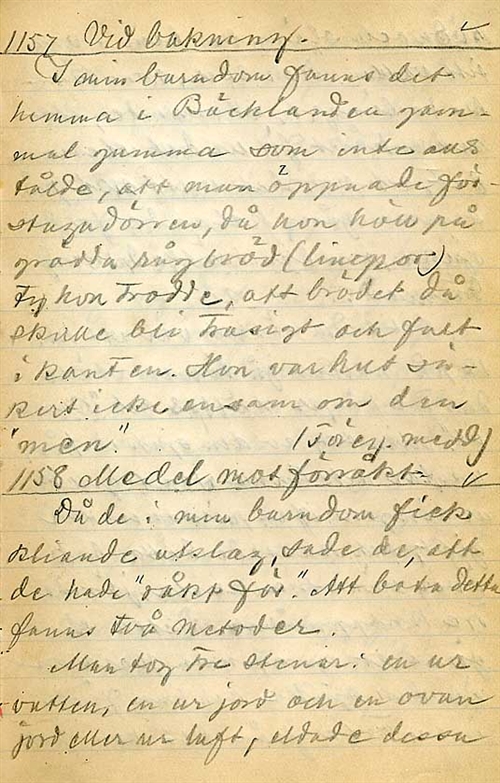 1157 Vid bakning.
I min barndom fanns det
hemma i Bäcklanden gam-
mal gumma som inte ans
tålde, att man öppnade för-
stugudörren, då hon höll på
grädda rågbröd (
Ty hon trodde, att brödet då
skulle bli trasigt och fult
i kanten. Hon var helt sä-
kert icke ensam om den
"men". (Föreg. medd)
1158 Medel mot försåkt.
Då de i min barndom fick
kliande utslag, sade de, att
de hade "råkt för". Att bota detta
fanns två metoder.
Man tog tre stenar: en ur
vatten, en ur jord och en ovan
jord eller ur luft, eldade dessa